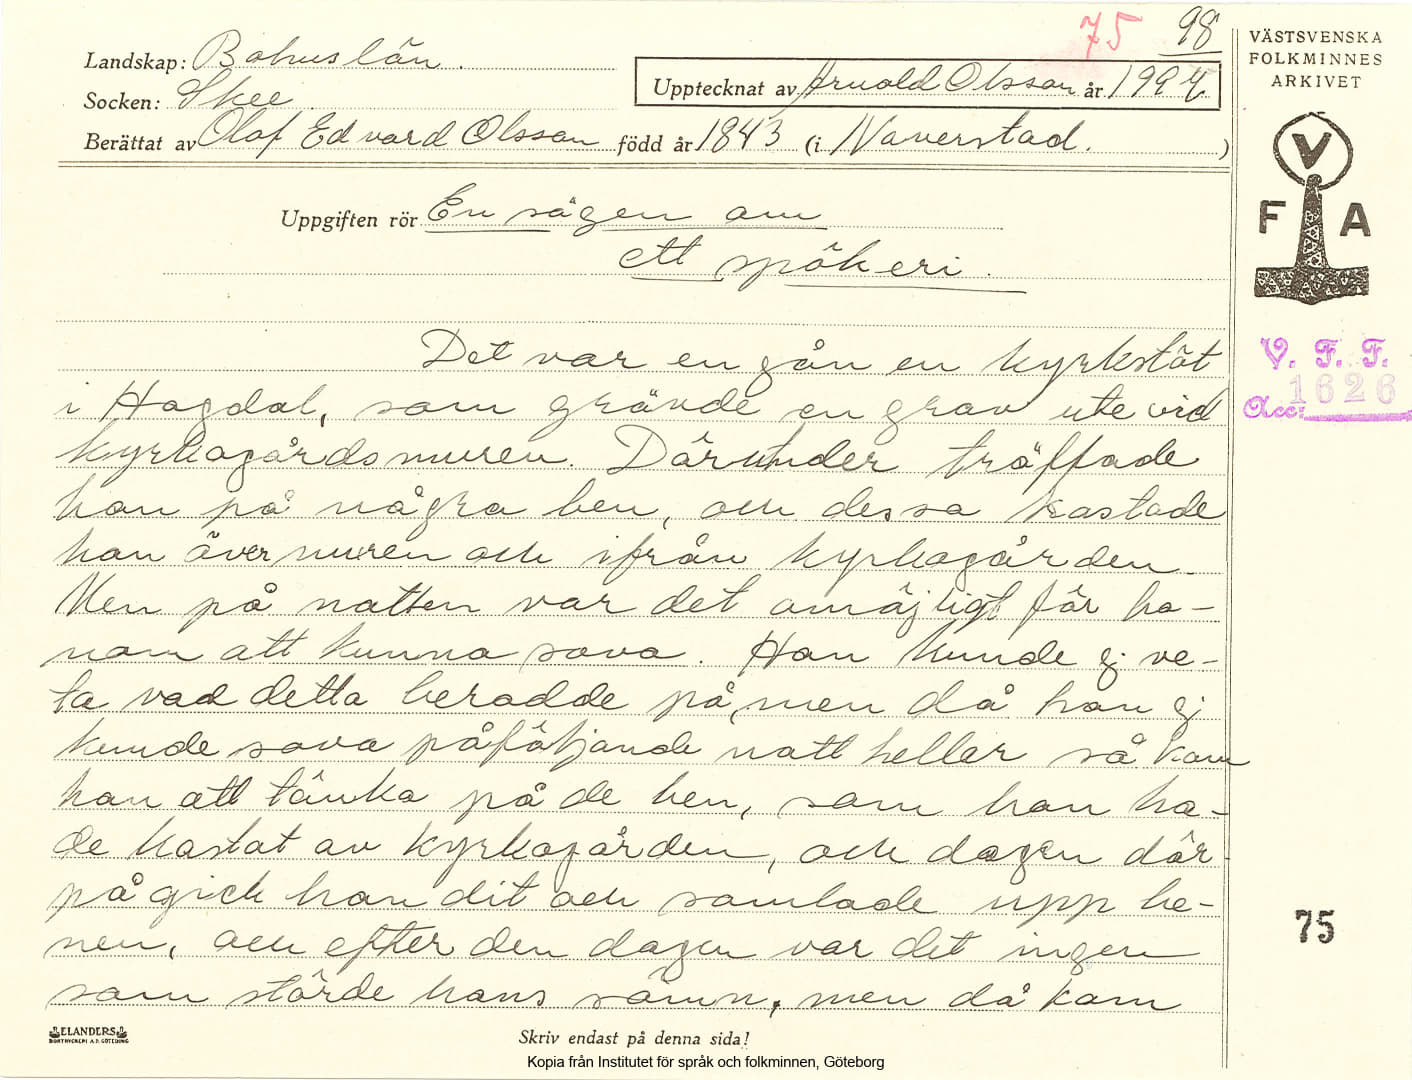 75 98
Landskap: Bohuslän.
Socken: Skee.
Upptecknat av Arnold Olsson år 1927
Berättat av Olof Edvard Olsson född år 1843 (i Naverstad.)
Uppgiften rör En sägen om
ett spökeri.
Det var en gån en kyrkstöt
i Hogdal, som grävde en grav ute vid
kyrkogårdsmuren. Därunder träffade
han på några ben, och dessa kastade
han över muren och ifrån kyrkogården.
Men på natten var det omöjligt för ho-
nom att kunna sova. Han kunde ej ve-
ta vad detta berodde på, men då han ej
kunde sova påföljande natt heller så kom
han att tänka på de ben, som han ha-
de kastat av kyrkogården, och dagen där-
på gick han dit och samlade upp be-
nen, och efter den dagen var det ingen
som störde hans sömn, men då kom
ELANDERS
BOKTRYCKERI A.B. GÖTEBORG
Skriv endast på denna sida!
Kopia från Institutet för språk och folkminnen, Göteborg
VÄSTSVENSKA
FOLKMINNES
ARKIVET
V
F A
V. F. F.
Acc: 1626
75